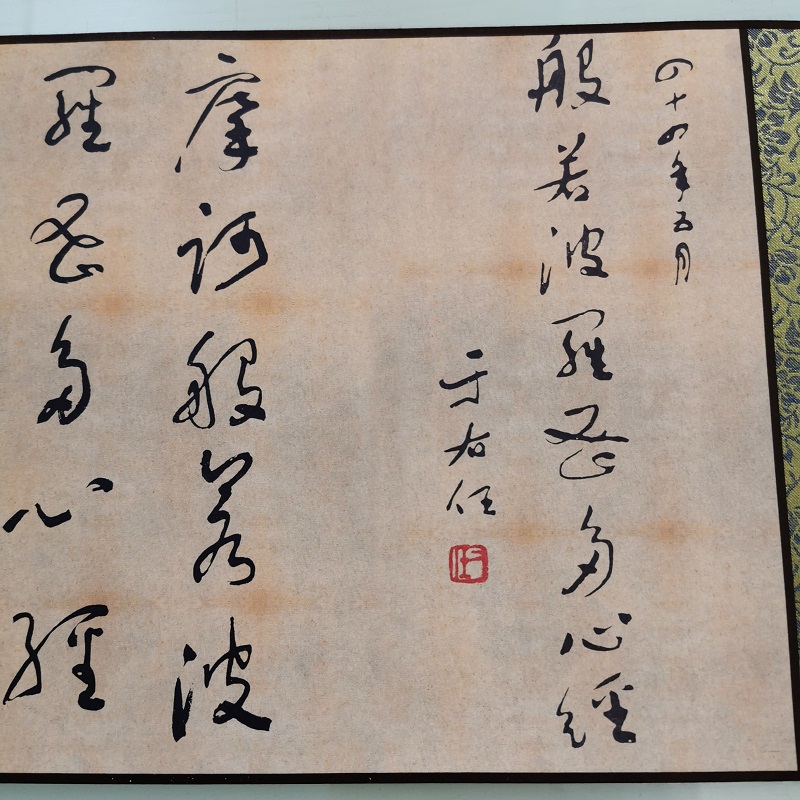 四十四年五月
般若波羅密多心經
于右任
摩訶般若波
羅密多心經